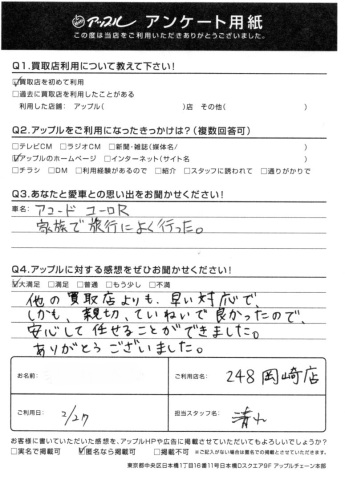 アップル アンケート用紙
この度は当店をご利用いただきありがとうございました。
Q1.買取店利用について教えて下さい!
☑買取店を初めて利用
□過去に買取店を利用したことがある
利用した店舗: アップル( )店 その他( )
Q2.アップルをご利用になったきっかけは?(複数回答可)
□テレビCM □ラジオCM □新聞・雑誌(媒体名/ )
☑アップルのホームページ □インターネット(サイト名 )
□チラシ □DM □利用経験があるので □紹介 □スタッフに誘われて □通りがかりで
Q3.あなたと愛車との思い出をお聞かせください!
車名: アコード ユーロR
家族で旅行によく行った。
Q4.アップルに対する感想をぜひお聞かせください!
☑大満足 □満足 □普通 □もう少し □不満
他の買取店よりも、早い対応で、
しかも、親切、ていねいで良かったので、
安心して任せることができました。
ありがとうございました。
お名前:
ご利用店名: 248岡崎店
ご利用日: 2/27
担当スタッフ名: 清水
お客様に書いていただいた感想を、アップルHPや広告に掲載させていただいてもよろしいでしょうか?
□実名で掲載可 ☑匿名なら掲載可 □掲載不可 ※ご記入がない場合は匿名での掲載とさせていただきます。
東京都中央区日本橋1丁目16番11号日本橋Dスクエア8F アップルチェーン本部